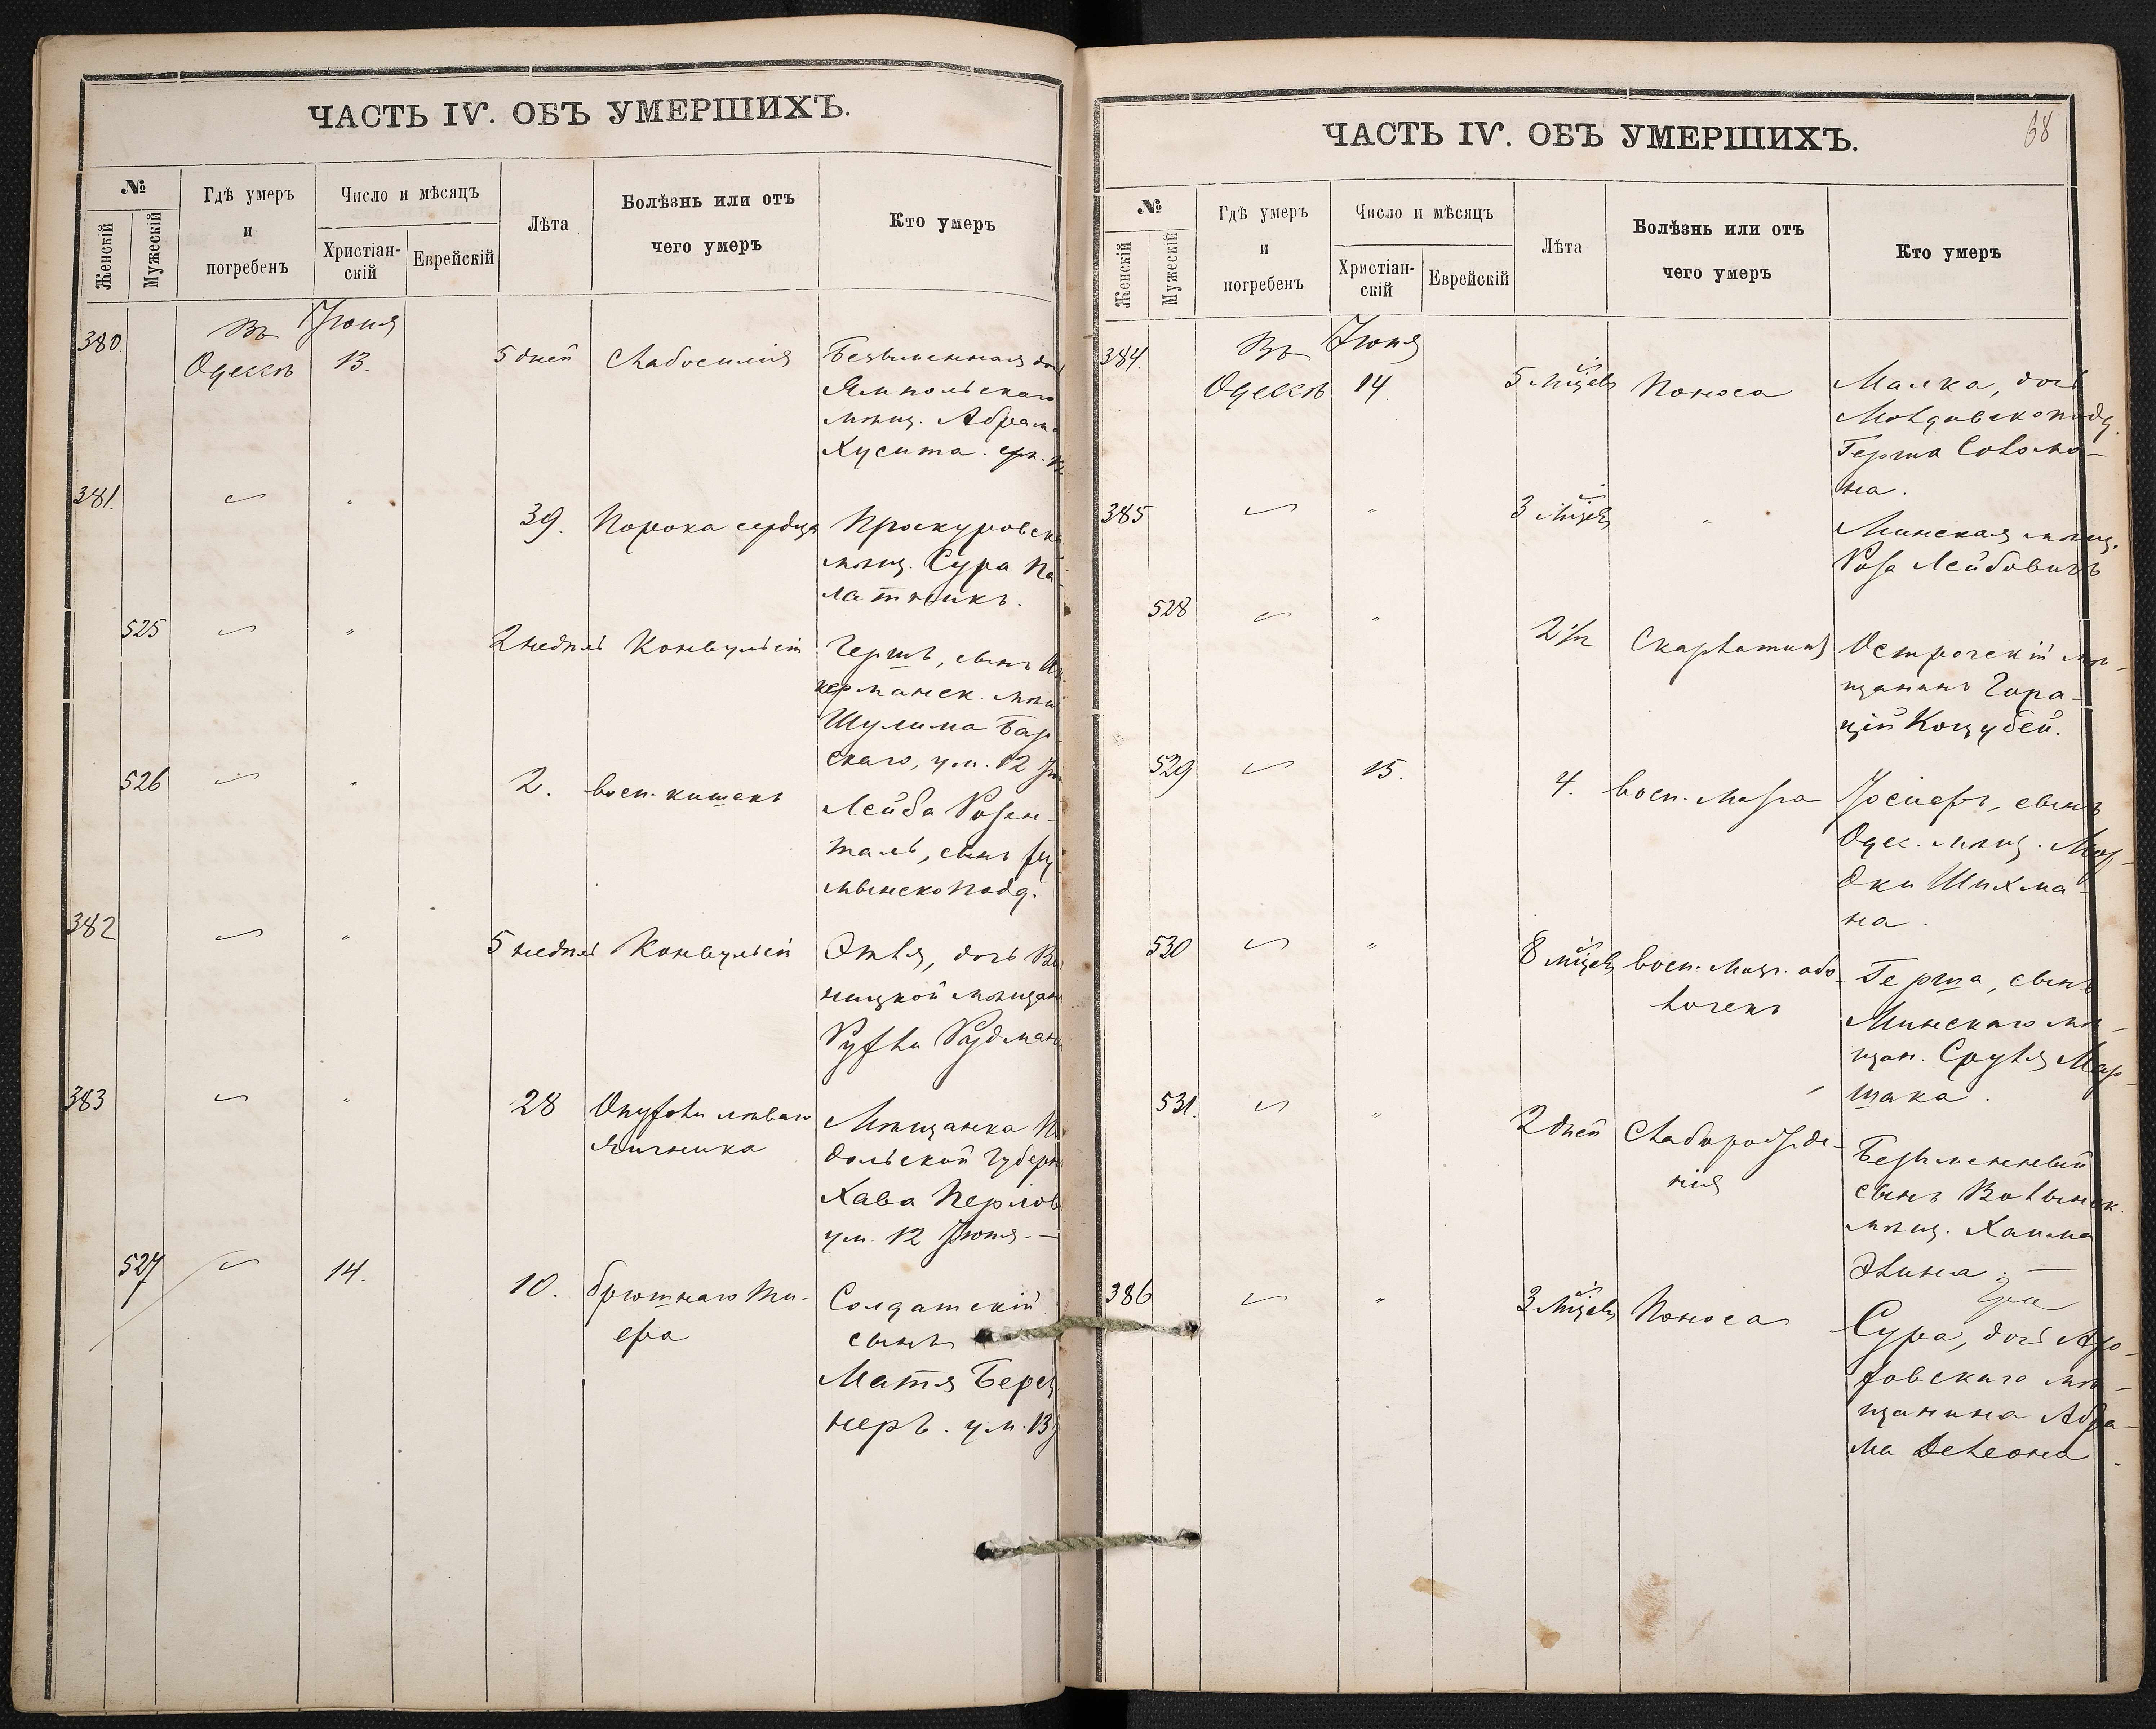 ЧАСТЬ IV. ОБЪ УМЕРШИХЪ.
№
Женскій
Мужескій
Гдѣ умеръ
и
погребенъ
Число и мѣсяцъ
Христіан-
скій
Еврейскій
Лѣта
Болѣзнь или отъ
чего умеръ
Кто умеръ
380.
Въ
Одессѣ
Іюня
13.
5 дней
Слабосилія
Безъименная
Ямпольскаго
мѣщ. Абрама
Хусита.
381.
"
39.
Порока сердца
Проскуровск
мѣщ. Сура Па-
латникъ.
525
"
2 недѣль
Конвульсіи
Гершъ, сынъ Ак
керманск. мѣщ
Шулима Бар-
скаго, ум. 12
526
"
2.
восп. кишекъ
Лейба Розен-
таль, сынъ Ру
мынскоподд.
382
"
5 недѣль
Конвульсій
Этля, дочь
ницкой мѣщан
Рухли Рудман
383
"
28
Опухоли лѣваго
Яичника
Мѣщанка По
дольской Губерн
Хава Перлов
ум. 12 Іюня. —
527
14.
10.
брюшнаго ти-
фа
Солдатскій
сынъ
Матя Берец
неръ. ум. 13
ЧАСТЬ IV. ОБЪ УМЕРШИХЪ.
68
№
Женскій
Мужескій
Гдѣ умеръ
и
погребенъ
Число и мѣсяцъ
Христіан-
скій
Еврейскій
Лѣта
Болѣзнь или отъ
чего умеръ
Кто умеръ
384.
Въ
Одессѣ
Іюня
14.
5 мѣсяц
Поноса
Малка, дочь
Молдавскоподд.
Герша Соломо-
на.
385
"
3 мѣсяц
"
Минская мѣщ.
Роза Лейбовичъ
528
"
2 1/2
Скарлатина
Острогскій мѣ-
щанинъ Гора-
цій Коцубей.
529
15.
4.
восп. мозга
Іосифъ, сынъ
Одес. мѣщ. Мор-
дки Шихма-
на.
530
"
8 мѣсяц
восп. мозг. обо-
лочекъ
Герша, сынъ
Минскаго мѣ-
щан. Сруля Мар-
шака.
531.
"
2 дней
Слаборожде-
нія
Безъименный
сынъ Волынск.
мѣщ. Хаима
Элина. —
386
"
3 мѣсяц
Поноса
Сура, дочь Азо-
ховскаго мѣ-
щанина Абра-
ма Делеона.